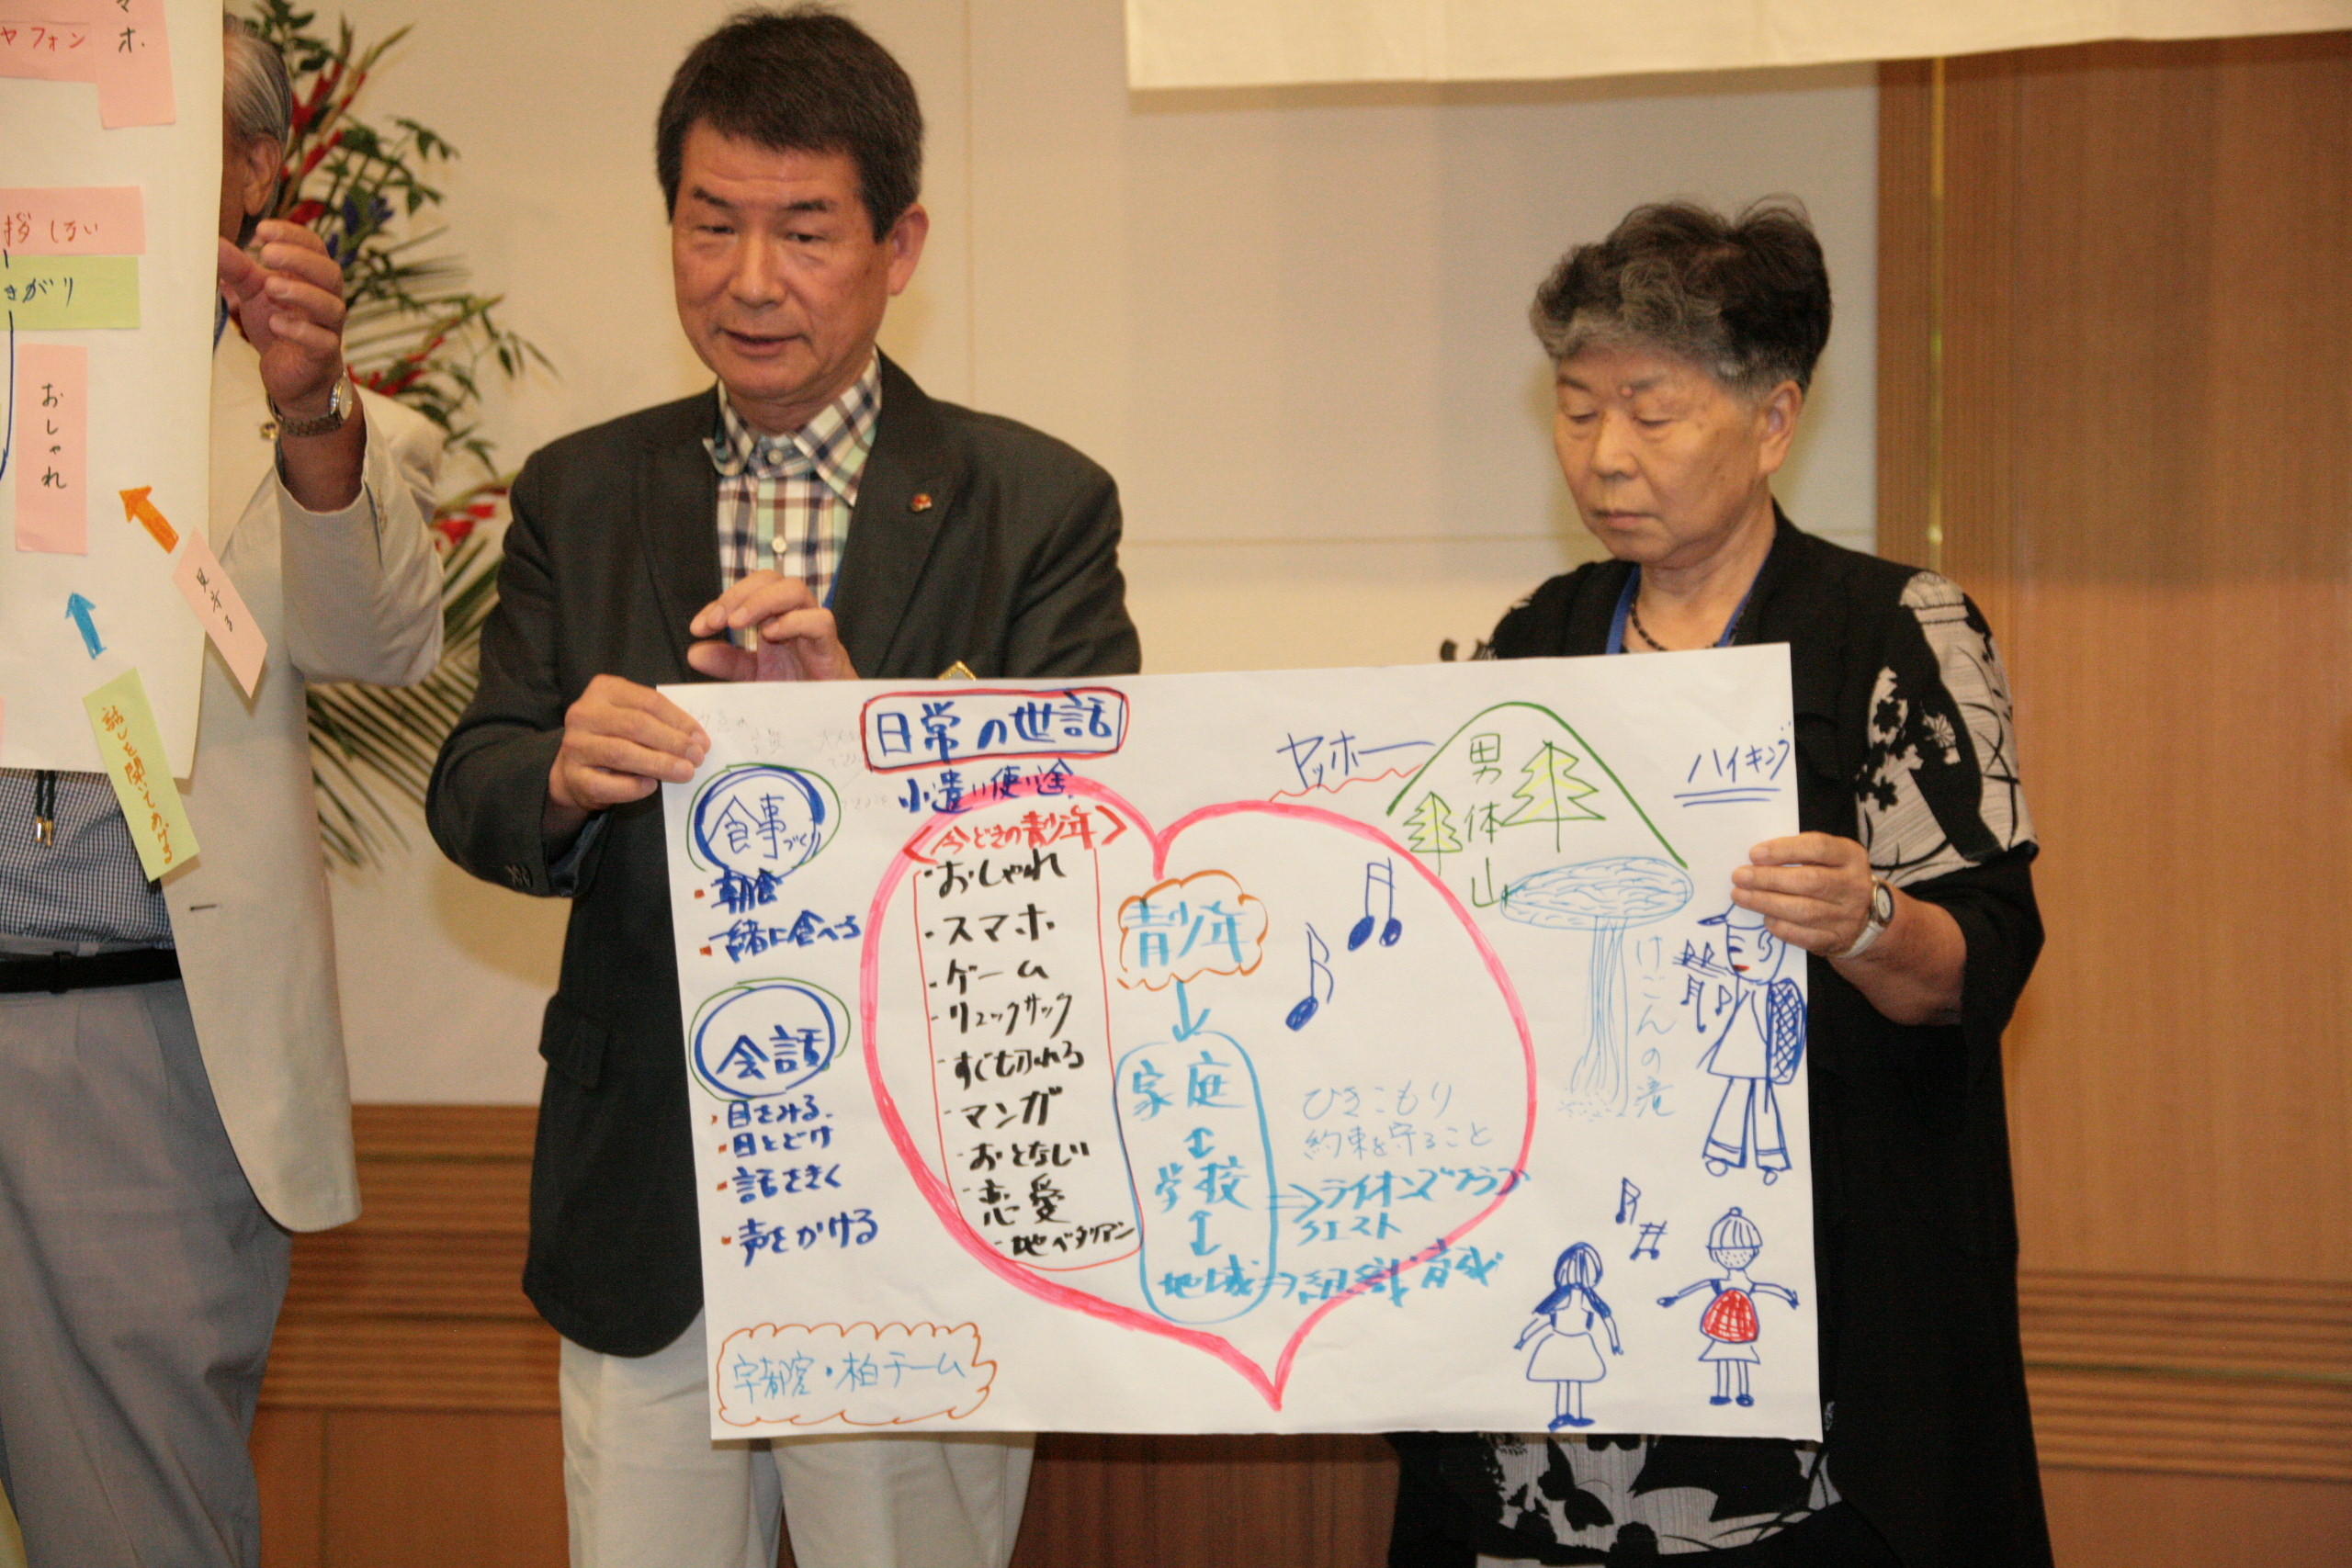 マホ
ヤフォン
拶しない
さがり
おしゃれ
見守る
話しを聞いてあげる
日常の世話
小遣い使い途
食事づくり
・朝食
・一緒に食べる
会話
・目をみる
・目とどけ
・話をきく
・声をかける
<今どきの青少年>
・おしゃれ
・スマホ
・ゲーム
・リュックサック
・すぐ切れる
・マンガ
・おとなしい
・恋愛
・地べタリアン
青少年
家庭
学校
地域→組織育成
ひきこもり
約束を守ること
ライオンズクラブ
クエスト
ヤッホー
男体山
ハイキング
けごんの滝
宇都宮・柏チーム